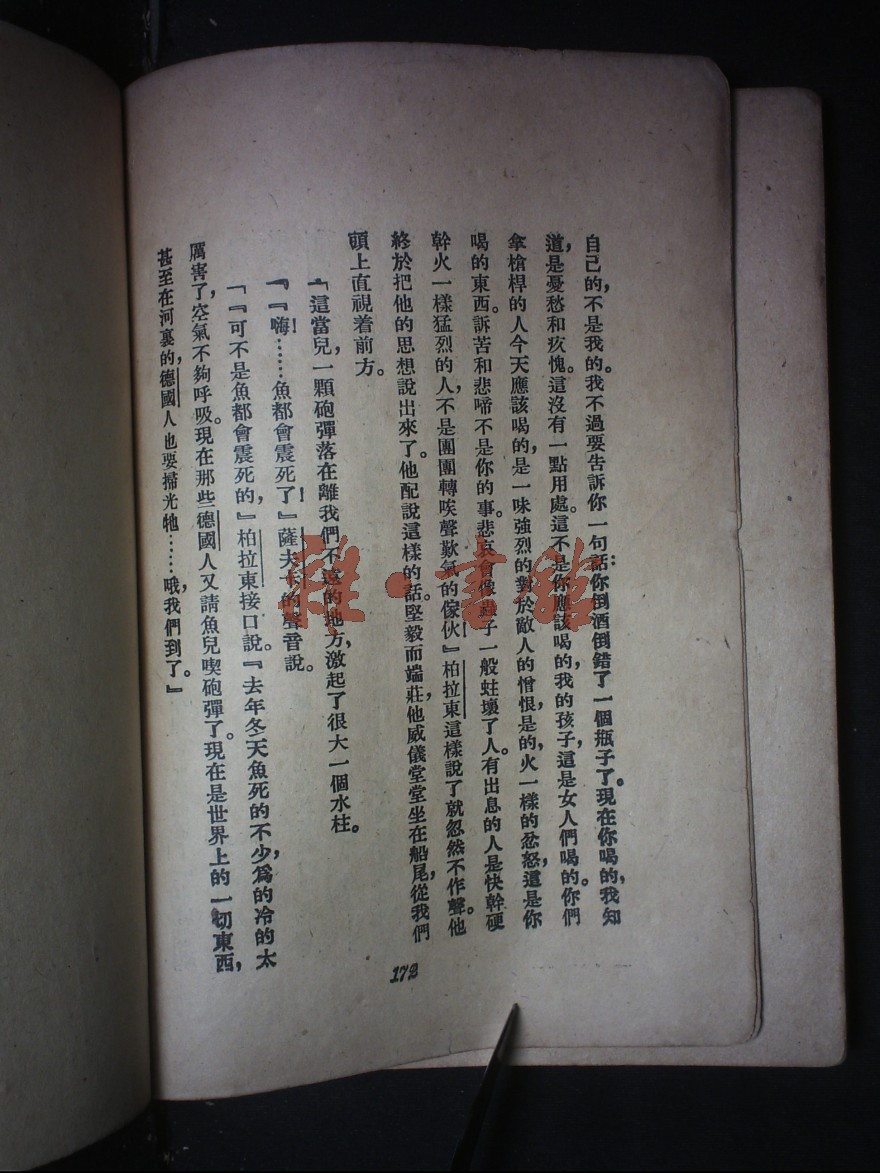 自己的，不是我的。我不過要告訴你一句話：你倒酒倒錯了一個瓶子了。現在你喝的，我知
道，是憂愁和疚愧。這沒有一點用處。這不是你應該喝的，我的孩子，這是女人們喝的。你們
拿槍桿的人今天應該喝的，是一味強烈的對於敵人的憎恨，是的，火一樣的忿怒，這是你
喝的東西。訴苦和悲啼不是你的事。悲哀會像蟲子一般蛀壞了人。有出息的人是快幹硬
幹火一樣猛烈的人，不是團團轉唉聲歎氣的傢伙。』柏拉東這樣說了就忽然不作聲。他
終於把他的思想說出來了。他配說這樣的話。堅毅而端莊，他威儀堂堂坐在船尾，從我們
頭上直視着前方。
「這當兒，一顆砲彈落在離我們不遠的地方，激起了很大一個水柱。
「『嗨！……魚都會震死了！』薩夫卡的聲音說。
「『可不是魚都會震死的，』柏拉東接口說。『去年冬天魚死的不少，爲的冷的太
厲害了，空氣不夠呼吸。現在那些德國人又請魚兒喫砲彈了。現在是世界上的一切東西，
甚至在河裏的，德國人也要掃光牠……哦，我們到了。』
172
雜·書館